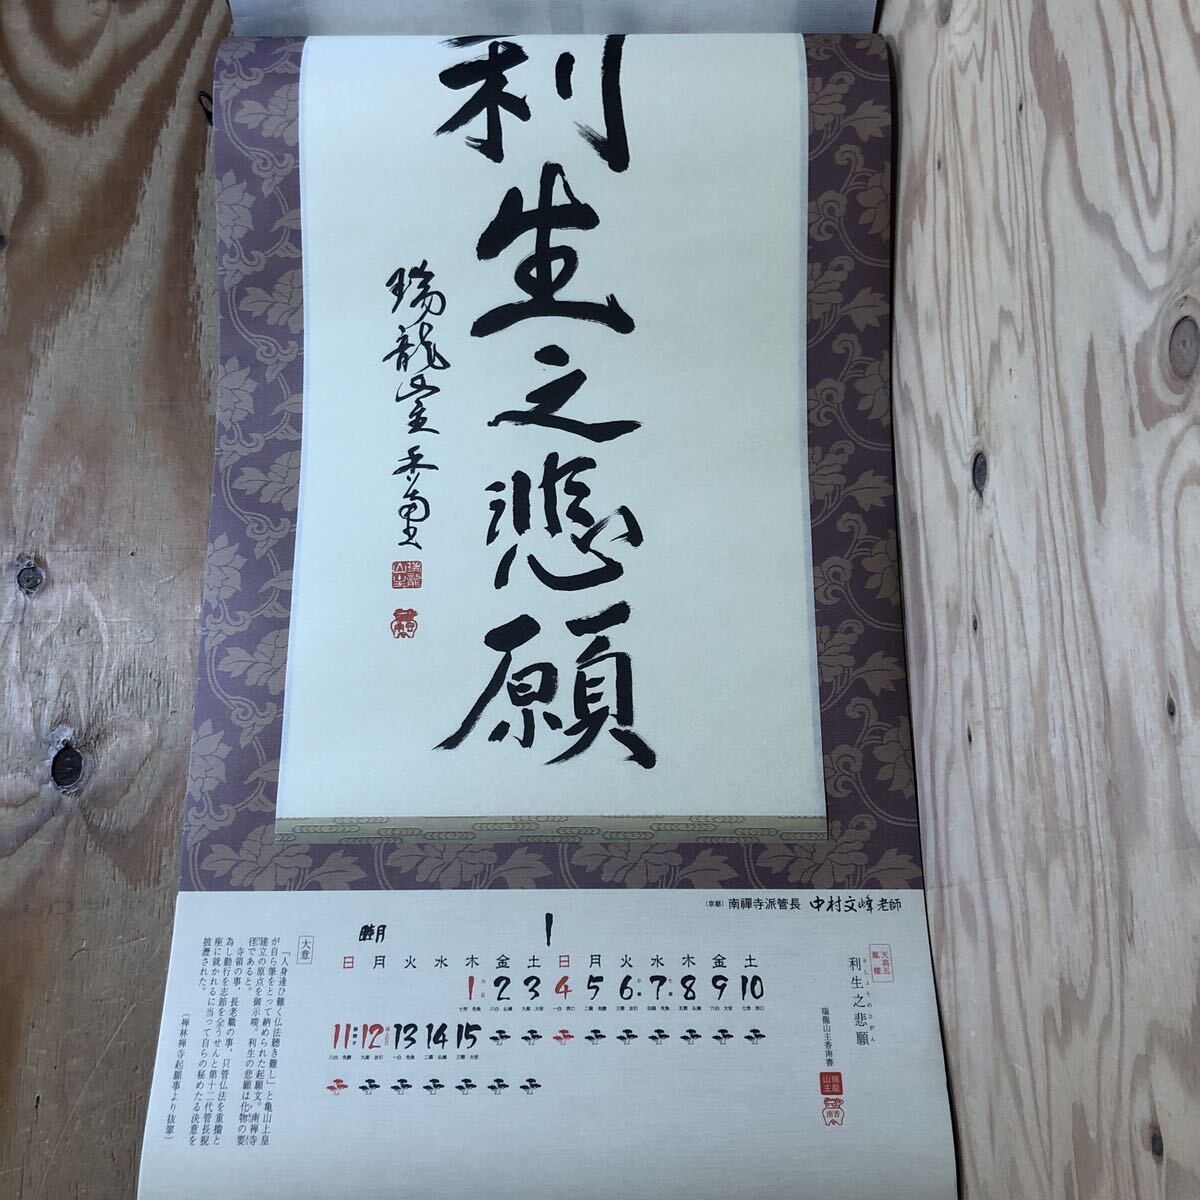 利生之悲願
瑞龍山主香南書
瑞龍山主
（京都）南禪寺派管長 中村文峰老師
天高五鳳樓
利生之悲願
りしょうのひがん
瑞龍山主香南書
瑞龍山主
南香
睦月
1
日 月 火 水 木 金 土 日 月 火 水 木 金 土
1 2 3 4 5 6 7 8 9 10
11 12 13 14 15
大意
「人身逢ひ難く仏法聴き難し」と亀山上皇
が自ら筆をとって納められた起願文。南禪寺
建立の原点を御示唆。利生の悲願は化物の要
径であると。
寺領の事、長老職の事、只管仏法を重擔と
為し勤行を志節を全うせんと第十二代管長猊
座に就かれるに当って自らの秘めたる決意を
披瀝された。
（禅林禅寺起願事より抜翠）